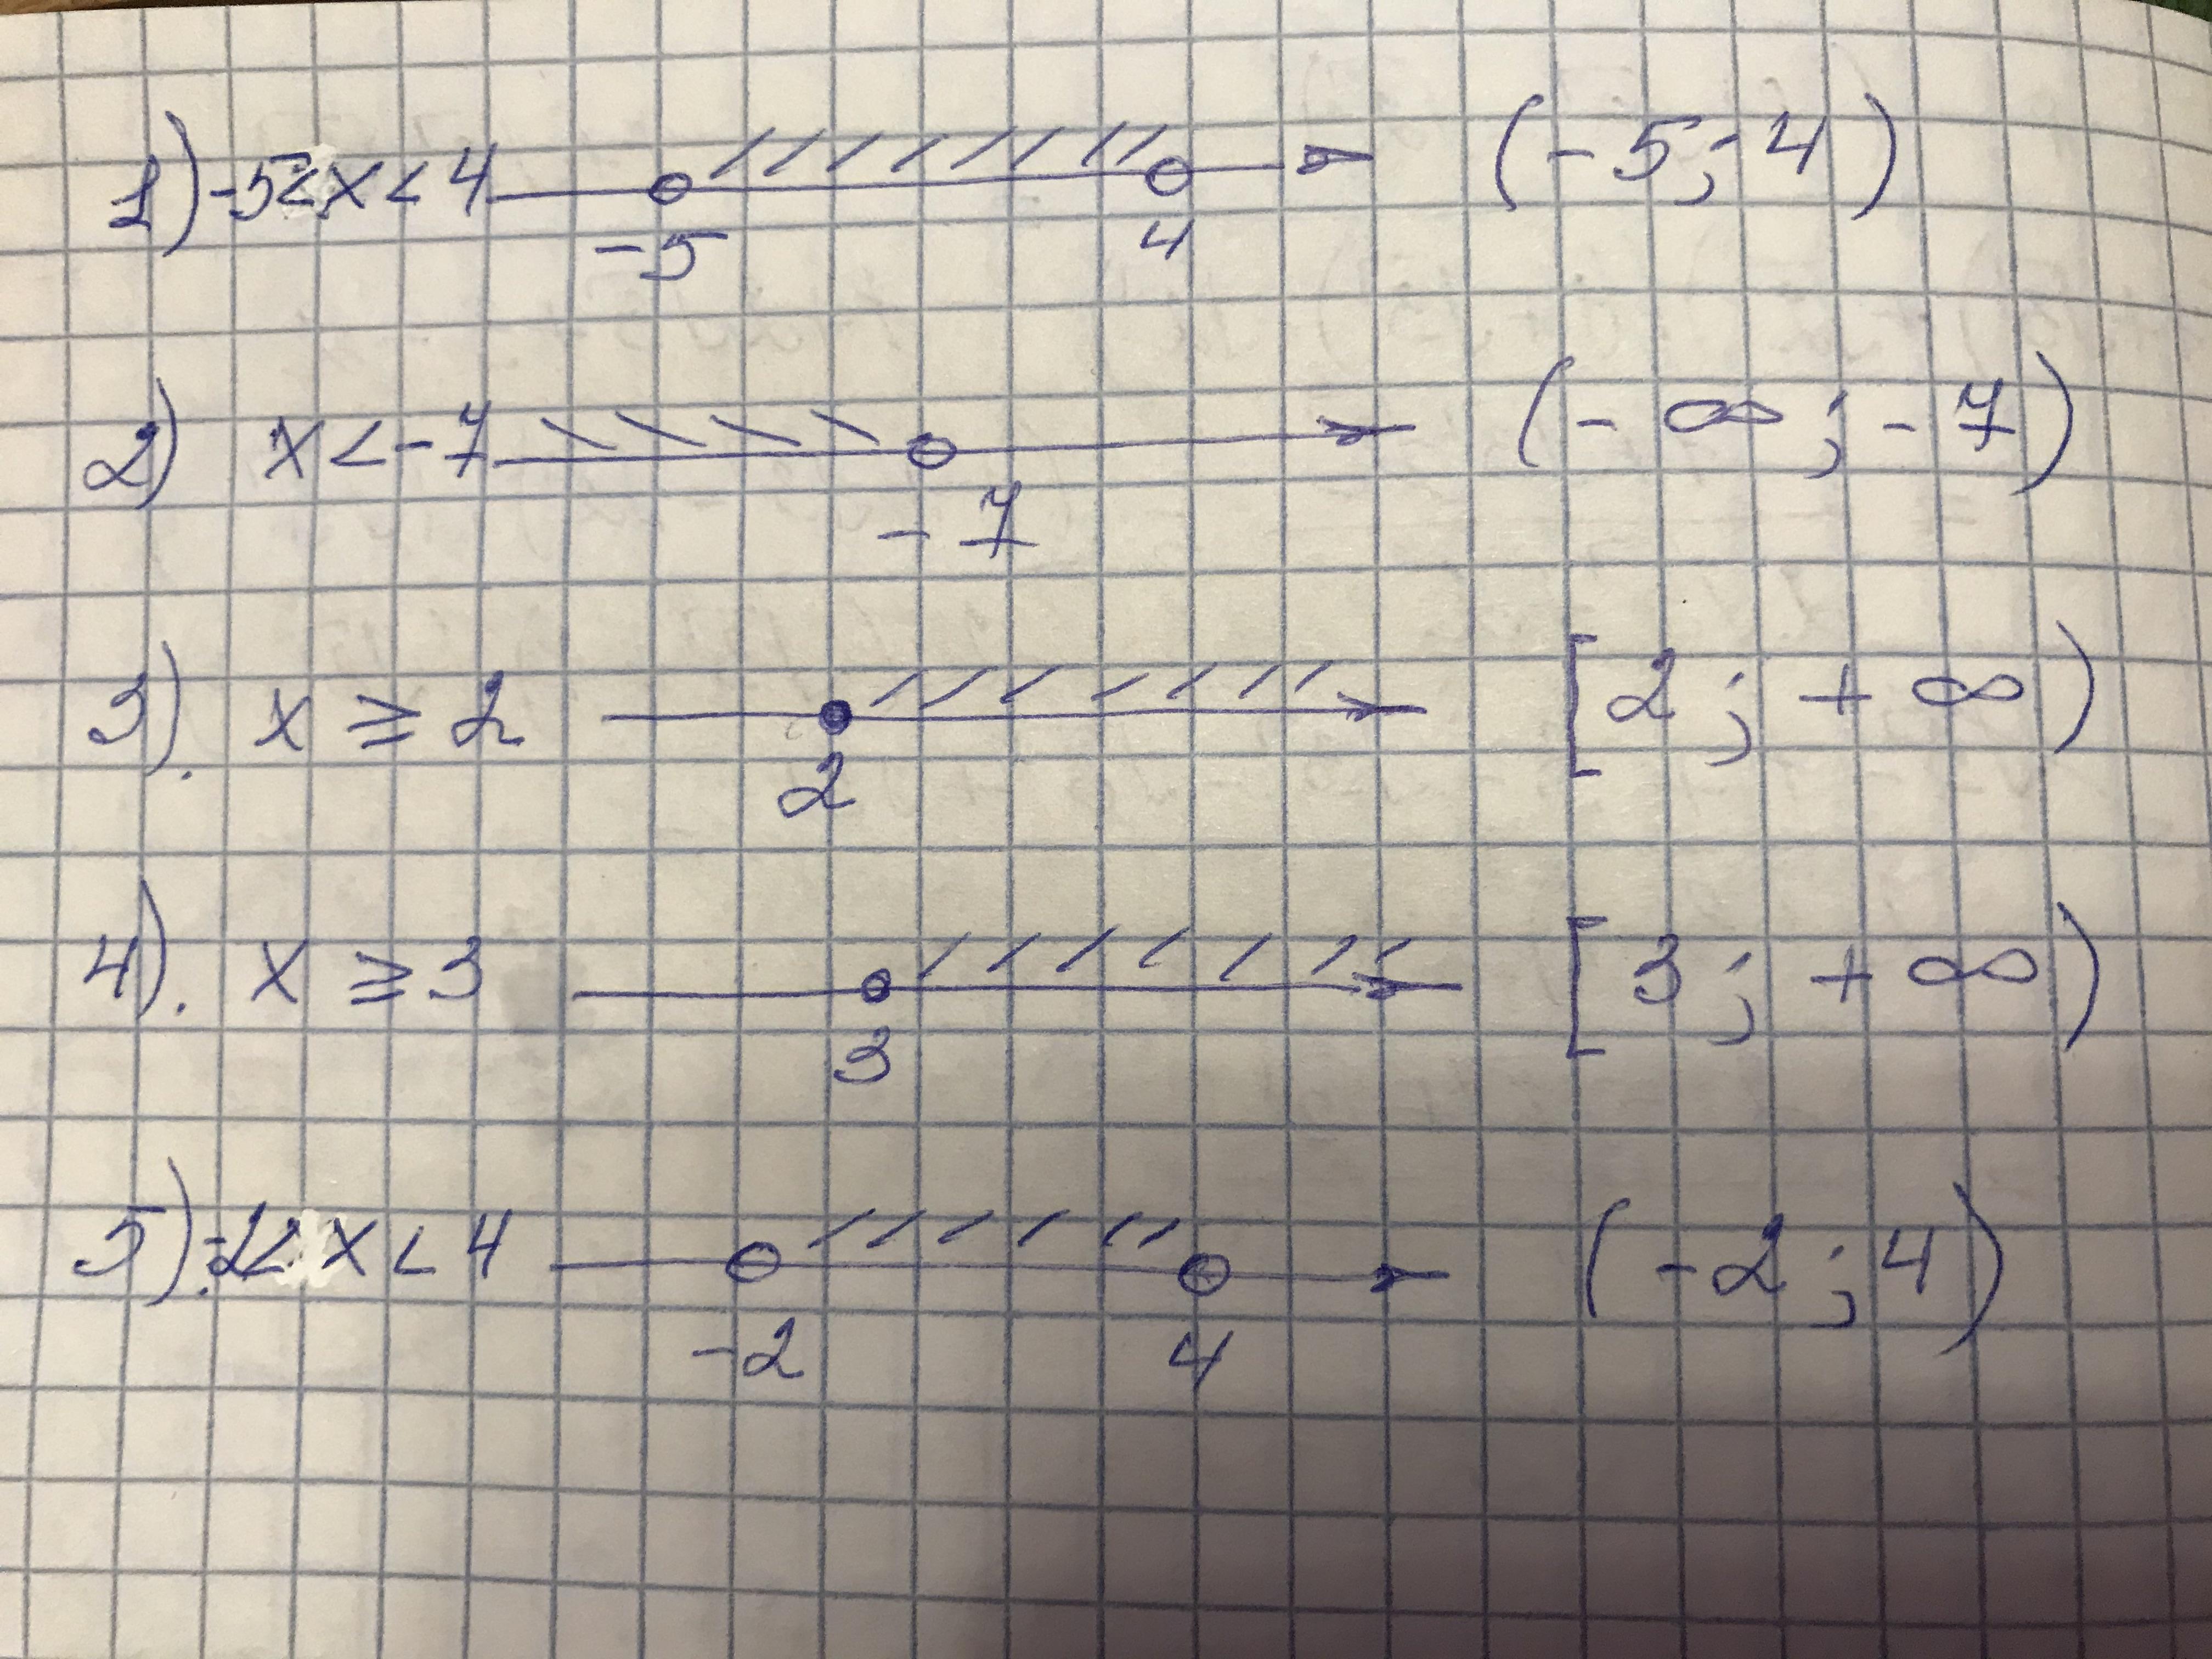 1) -5<x<4 (-5; 4)
-5 4
2) x<-7 (-∞; -7)
-7
3). x ≥ 2 [2; +∞)
2
4). x ≥ 3 [3; +∞)
3
5). -2<x<4 (-2; 4)
-2 4